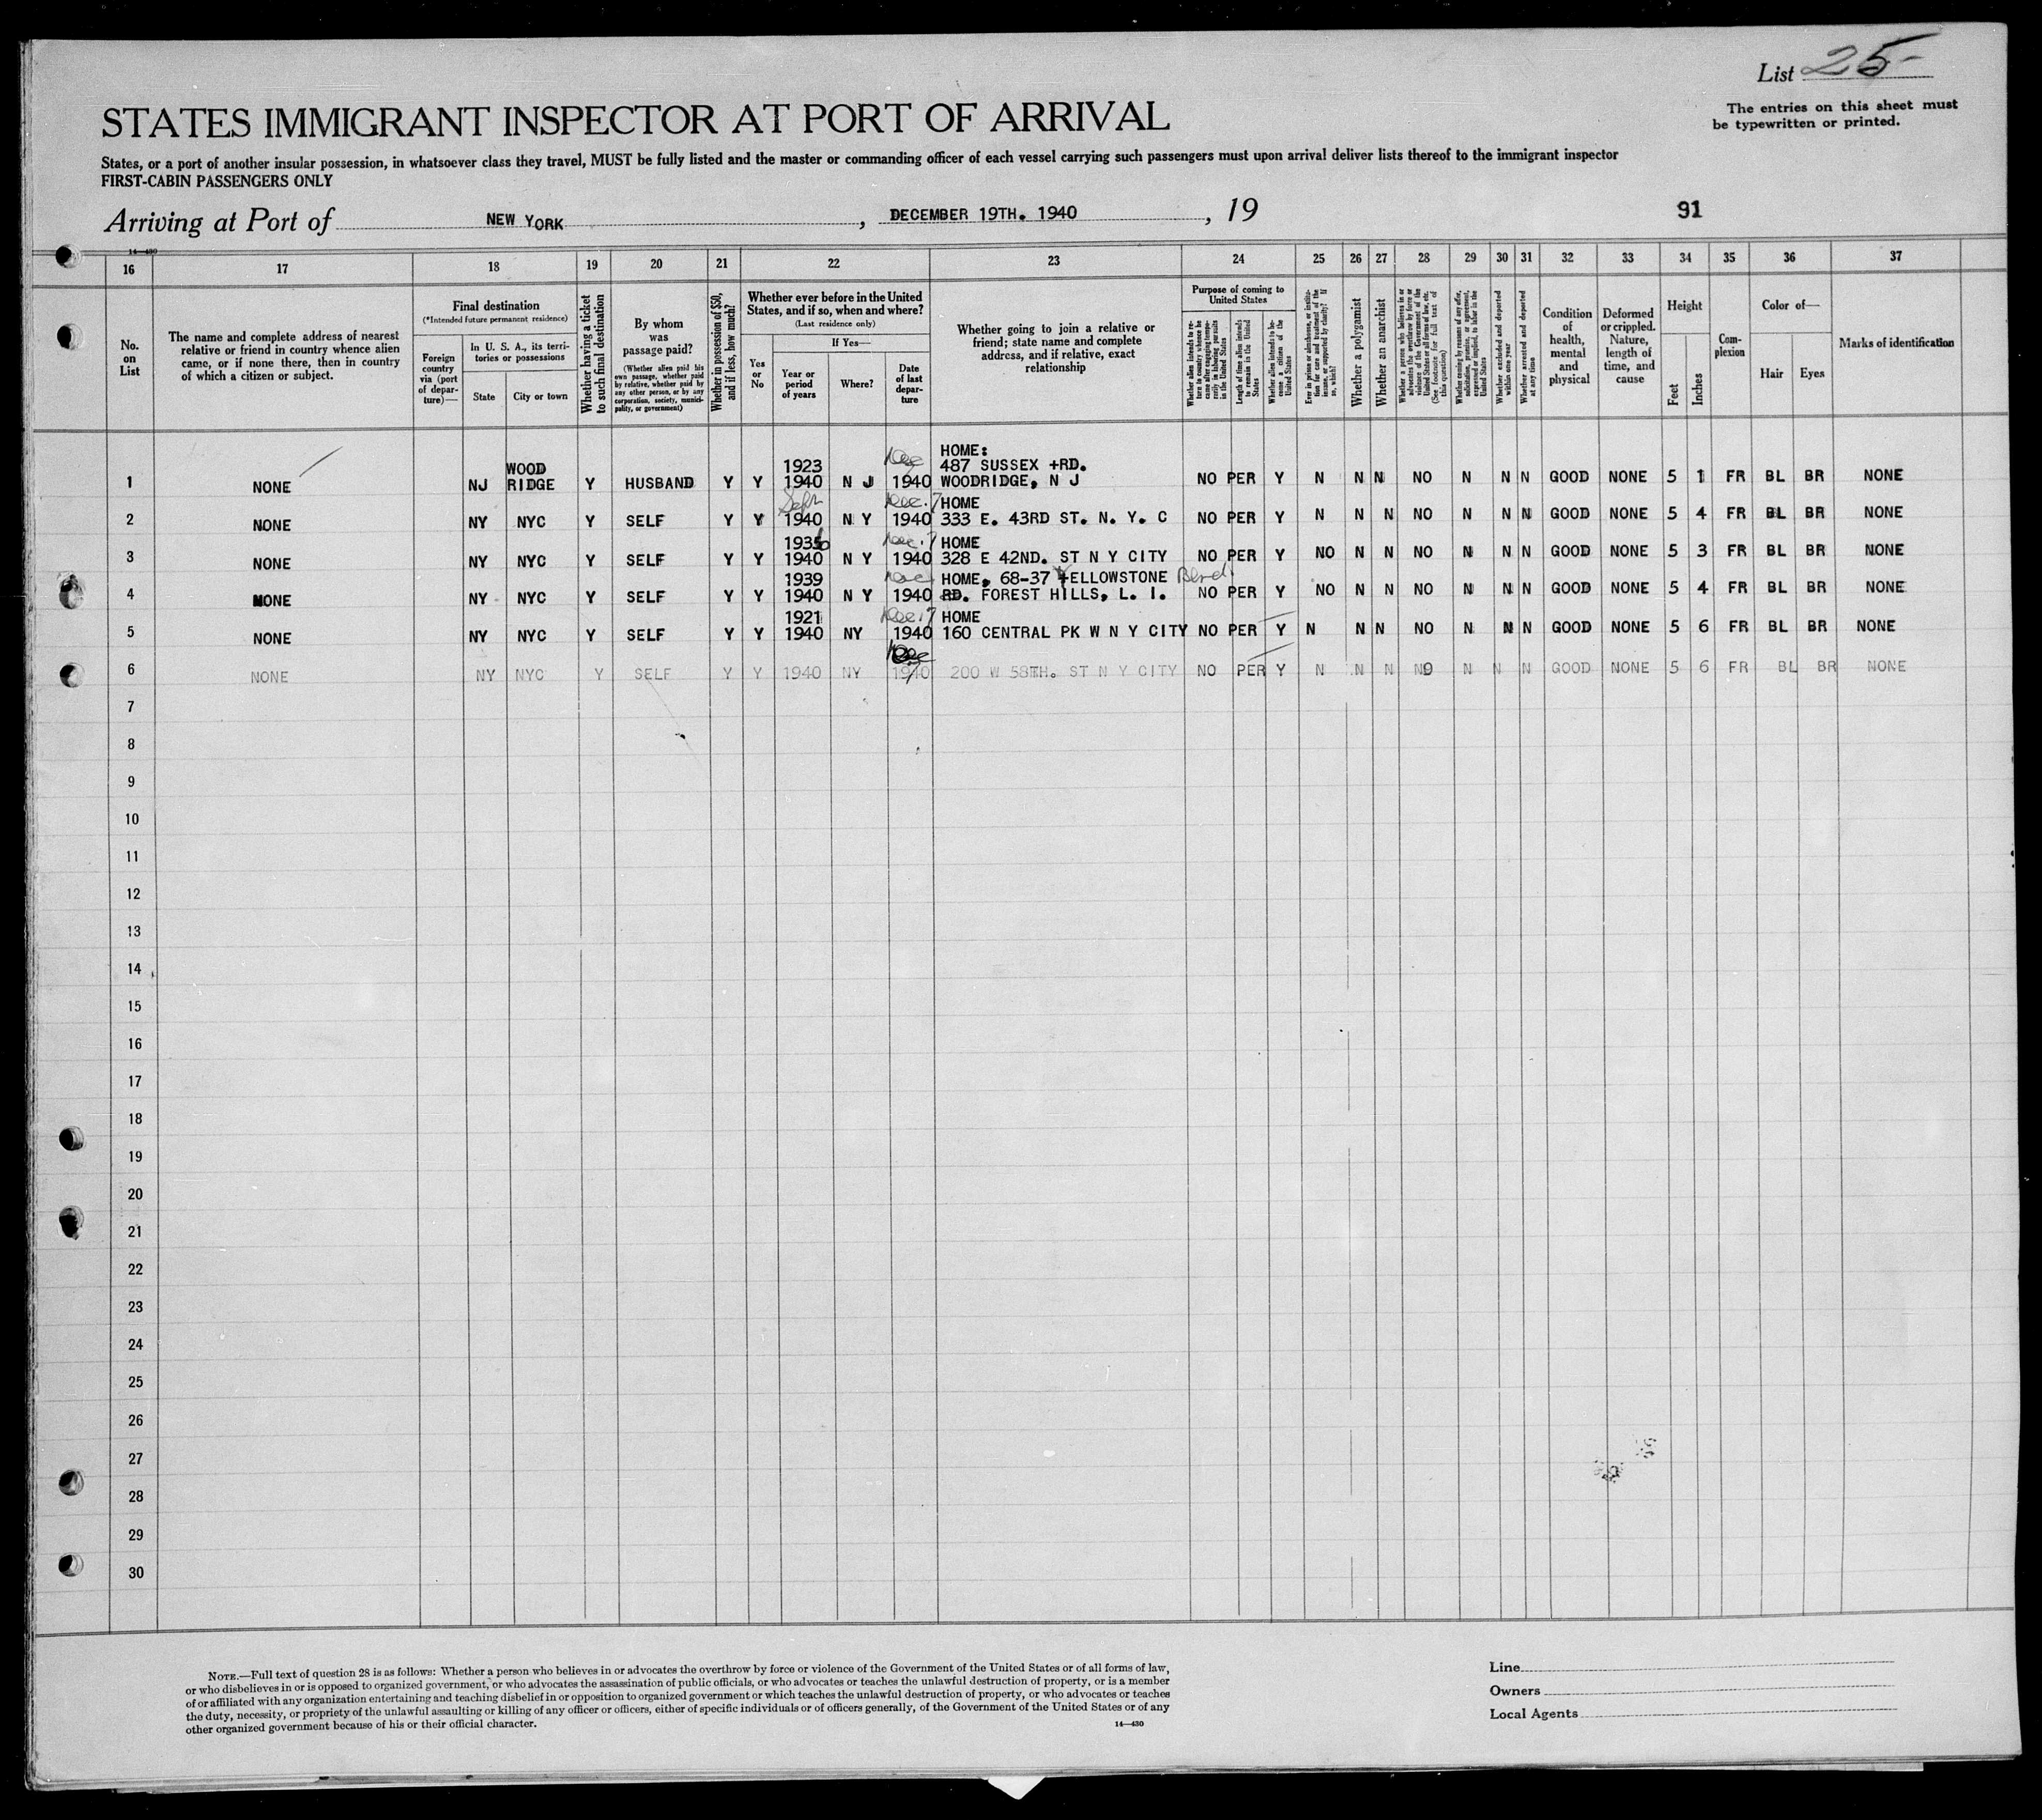 List 25-
The entries on this sheet must
be typewritten or printed.
STATES IMMIGRANT INSPECTOR AT PORT OF ARRIVAL
States, or a port of another insular possession, in whatsoever class they travel, MUST be fully listed and the master or commanding officer of each vessel carrying such passengers must upon arrival deliver lists thereof to the immigrant inspector
FIRST-CABIN PASSENGERS ONLY
Arriving at Port of NEW YORK, DECEMBER 19TH. 1940, 19
91
14—430
16 17 18 19 20 21 22 23 24 25 26 27 28 29 30 31 32 33 34 35 36 37
No.
on
List
The name and complete address of nearest
relative or friend in country whence alien
came, or if none there, then in country
of which a citizen or subject.
Final destination
(*Intended future permanent residence)
Foreign
country
via (port
of depar-
ture)—
In U. S. A., its terri-
tories or possessions
State
City or town
Whether having a ticket
to such final destination
By whom
was
passage paid?
(Whether alien paid his
own passage, whether paid
by relative, whether paid by
any other person, or by any
corporation, society, munici-
pality, or government)
Whether in possession of $50,
and if less, how much?
Whether ever before in the United
States, and if so, when and where?
(Last residence only)
Yes
or
No
If Yes—
Year or
period
of years
Where?
Date
of last
depar-
ture
Whether going to join a relative or
friend; state name and complete
address, and if relative, exact
relationship
Purpose of coming to
United States
Whether alien intends to re-
turn to country whence he
came after engaging tempo-
rarily in laboring pursuits
in the United States
Length of time alien intends
to remain in the United
States
Whether alien intends to be-
come a citizen of the
United States
Ever in prison or almshouse, or institu-
tion for care and treatment of the
insane, or supported by charity? If
so, which?
Whether a polygamist
Whether an anarchist
Whether a person who believes in or
advocates the overthrow by force or
violence of the Government of the
United States or all forms of law, etc.
(See footnote for full text of
this question)
Whether coming by reason of any offer,
solicitation, promise, or agreement,
expressed or implied, to labor in the
United States
Whether excluded and deported
within one year
Whether arrested and deported
at any time
Condition
of
health,
mental
and
physical
Deformed
or crippled.
Nature,
length of
time, and
cause
Height
Feet
Inches
Com-
plexion
Color of—
Hair
Eyes
Marks of identification
WOOD 1923 Dec HOME:
487 SUSSEX +RD.
1 NONE NJ RIDGE Y HUSBAND Y Y 1940 N J 1940 WOODRIDGE, N J NO PER Y N N N NO N N N GOOD NONE 5 1 FR BL BR NONE
Sept Dec. 7 HOME
2 NONE NY NYC Y SELF Y Y 1940 N Y 1940 333 E. 43RD ST. N. Y. C NO PER Y N N N NO N N N GOOD NONE 5 4 FR BL BR NONE
1936 Dec. 7 HOME
3 NONE NY NYC Y SELF Y Y 1940 N Y 1940 328 E 42ND. ST N Y CITY NO PER Y NO N N NO N N N GOOD NONE 5 3 FR BL BR NONE
1939 Dec HOME, 68-37 YELLOWSTONE Blvd.
4 NONE NY NYC Y SELF Y Y 1940 N Y 1940 RD. FOREST HILLS, L. I. NO PER Y NO N N NO N N N GOOD NONE 5 4 FR BL BR NONE
1921 Dec 17 HOME
5 NONE NY NYC Y SELF Y Y 1940 NY 1940 160 CENTRAL PK W N Y CITY NO PER Y N N N NO N N N GOOD NONE 5 6 FR BL BR NONE
Dec
6 NONE NY NYC Y SELF Y Y 1940 NY 1940 200 W 58TH. ST N Y CITY NO PER Y N N N NO N N N GOOD NONE 5 6 FR BL BR NONE
7
8
9
10
11
12
13
14
15
16
17
18
19
20
21
22
23
24
25
26
27
28
29
30
NOTE.—Full text of question 28 is as follows: Whether a person who believes in or advocates the overthrow by force or violence of the Government of the United States or of all forms of law,
or who disbelieves in or is opposed to organized government, or who advocates the assassination of public officials, or who advocates or teaches the unlawful destruction of property, or is a member
of or affiliated with any organization entertaining and teaching disbelief in or opposition to organized government or which teaches the unlawful destruction of property, or who advocates or teaches
the duty, necessity, or propriety of the unlawful assaulting or killing of any officer or officers, either of specific individuals or of officers generally, of the Government of the United States or of any
other organized government because of his or their official character.
14—430
Line
Owners
Local Agents